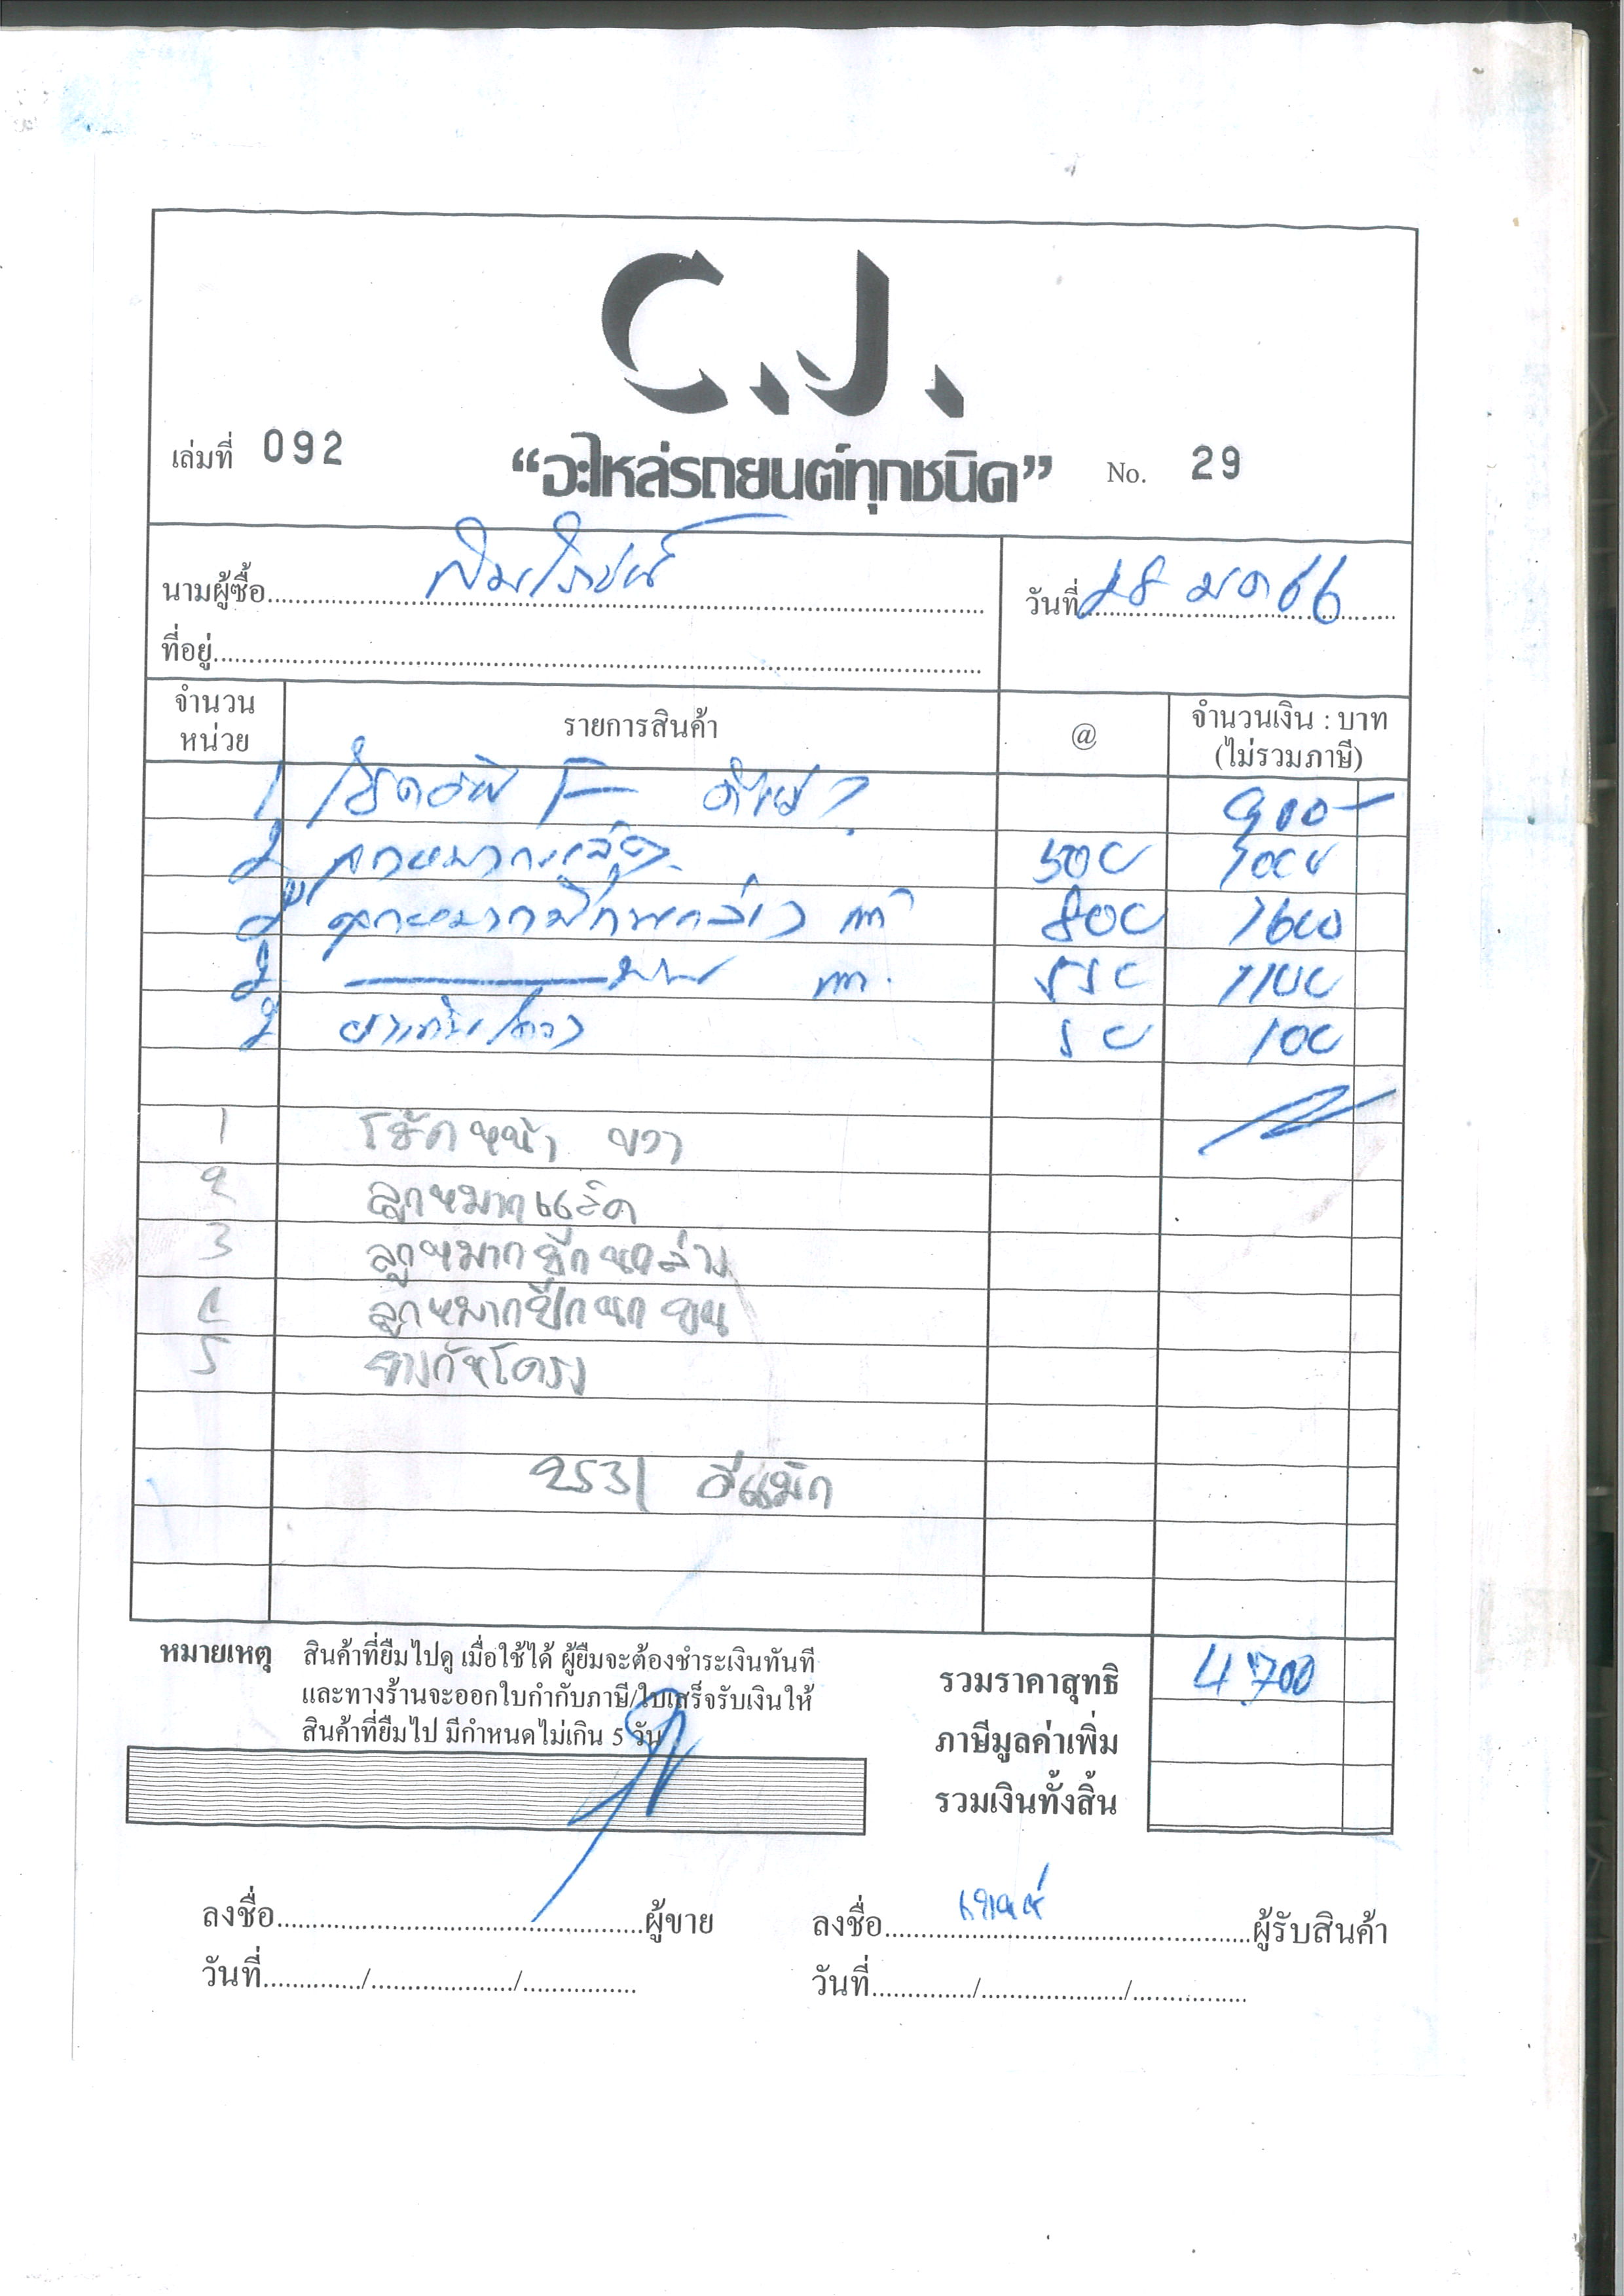 C.J.
เล่มที่ 092 “อะไหล่รถยนต์ทุกชนิด” No. 29
นามผู้ซื้อ วันที่ 28 มค 66
ที่อยู่
จำนวนหน่วย รายการสินค้า @ จำนวนเงิน : บาท (ไม่รวมภาษี)
1 900-
2 ลูกหมากแร็ค 500 1000
2 ลูกหมากปีกนกล่าง 800 1600
2 บน 550 1100
2 ยางกันโคลง 50 100
1 โช๊คหน้า ขวา
2 ลูกหมากแร็ค
3 ลูกหมากปีกนกล่าง
4 ลูกหมากปีกนกบน
5 ยางกันโครง
2531 ดีแม็ก
หมายเหตุ สินค้าที่ยืมไปดู เมื่อใช้ได้ ผู้ยืมจะต้องชำระเงินทันที
และทางร้านจะออกใบกำกับภาษี/ใบเสร็จรับเงินให้
สินค้าที่ยืมไป มีกำหนดไม่เกิน 5 วัน
รวมราคาสุทธิ 4700
ภาษีมูลค่าเพิ่ม
รวมเงินทั้งสิ้น
ลงชื่อ ผู้ขาย ลงชื่อ ผู้รับสินค้า
วันที่ / / วันที่ / /